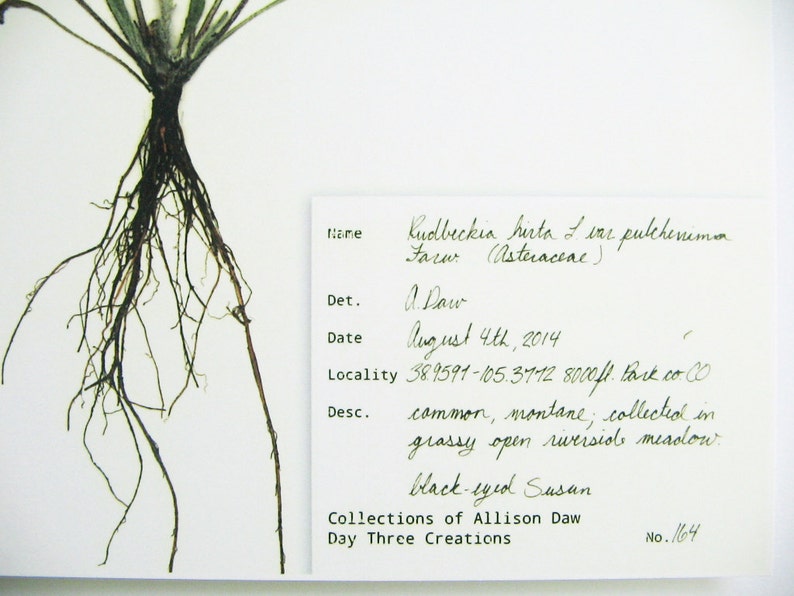 Name Rudbeckia hirta L. var pulcherrima
Farw. (Asteraceae)
Det. A. Daw
Date August 4th, 2014
Locality 38.9597-105.3772 8000ft. Park co. CO
Desc. common, montane; collected in
grassy open riverside meadow.
black-eyed Susan
Collections of Allison Daw
Day Three Creations No. 164